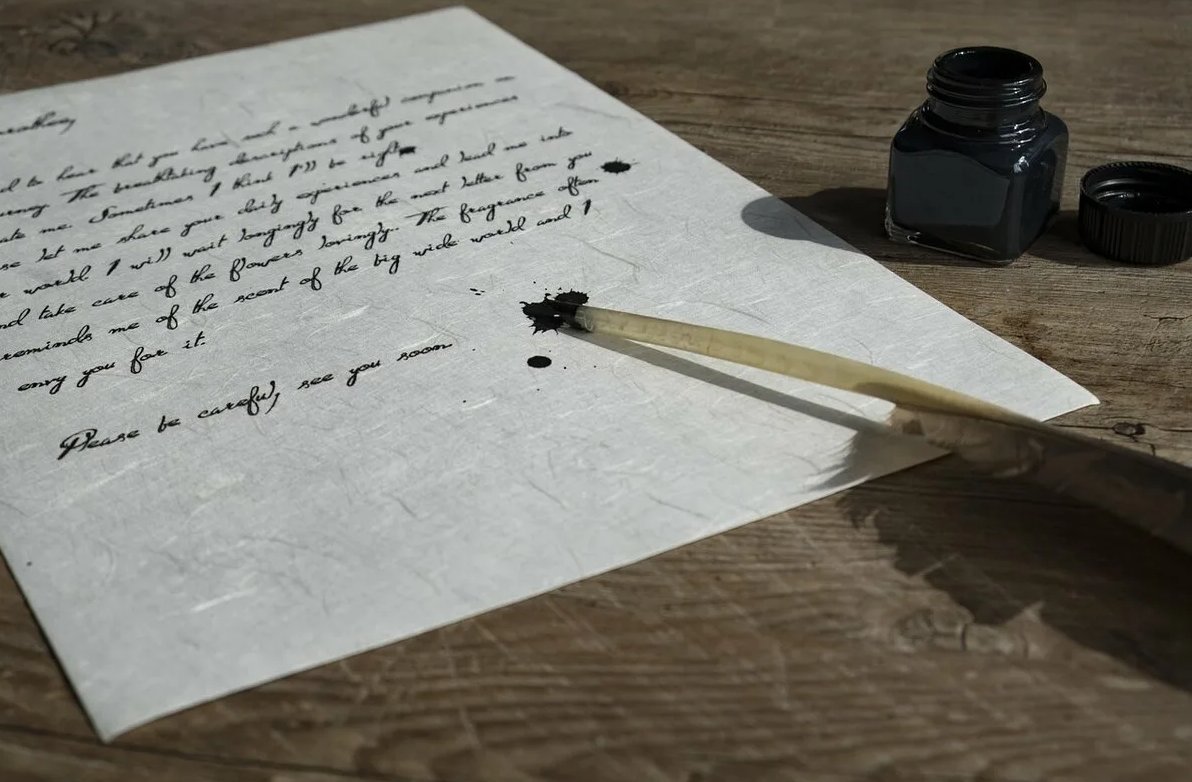 to hear that you have such a wonderful companion on
The breathtaking descriptions of your experiences
me. Sometimes I think I'll be right
let me share your daily experiences and lead me into
world. I will wait longingly for the next letter from you
take care of the flowers lovingly. The fragrance often
reminds me of the scent of the big wide world and I
envy you for it.
Please be careful, see you soon